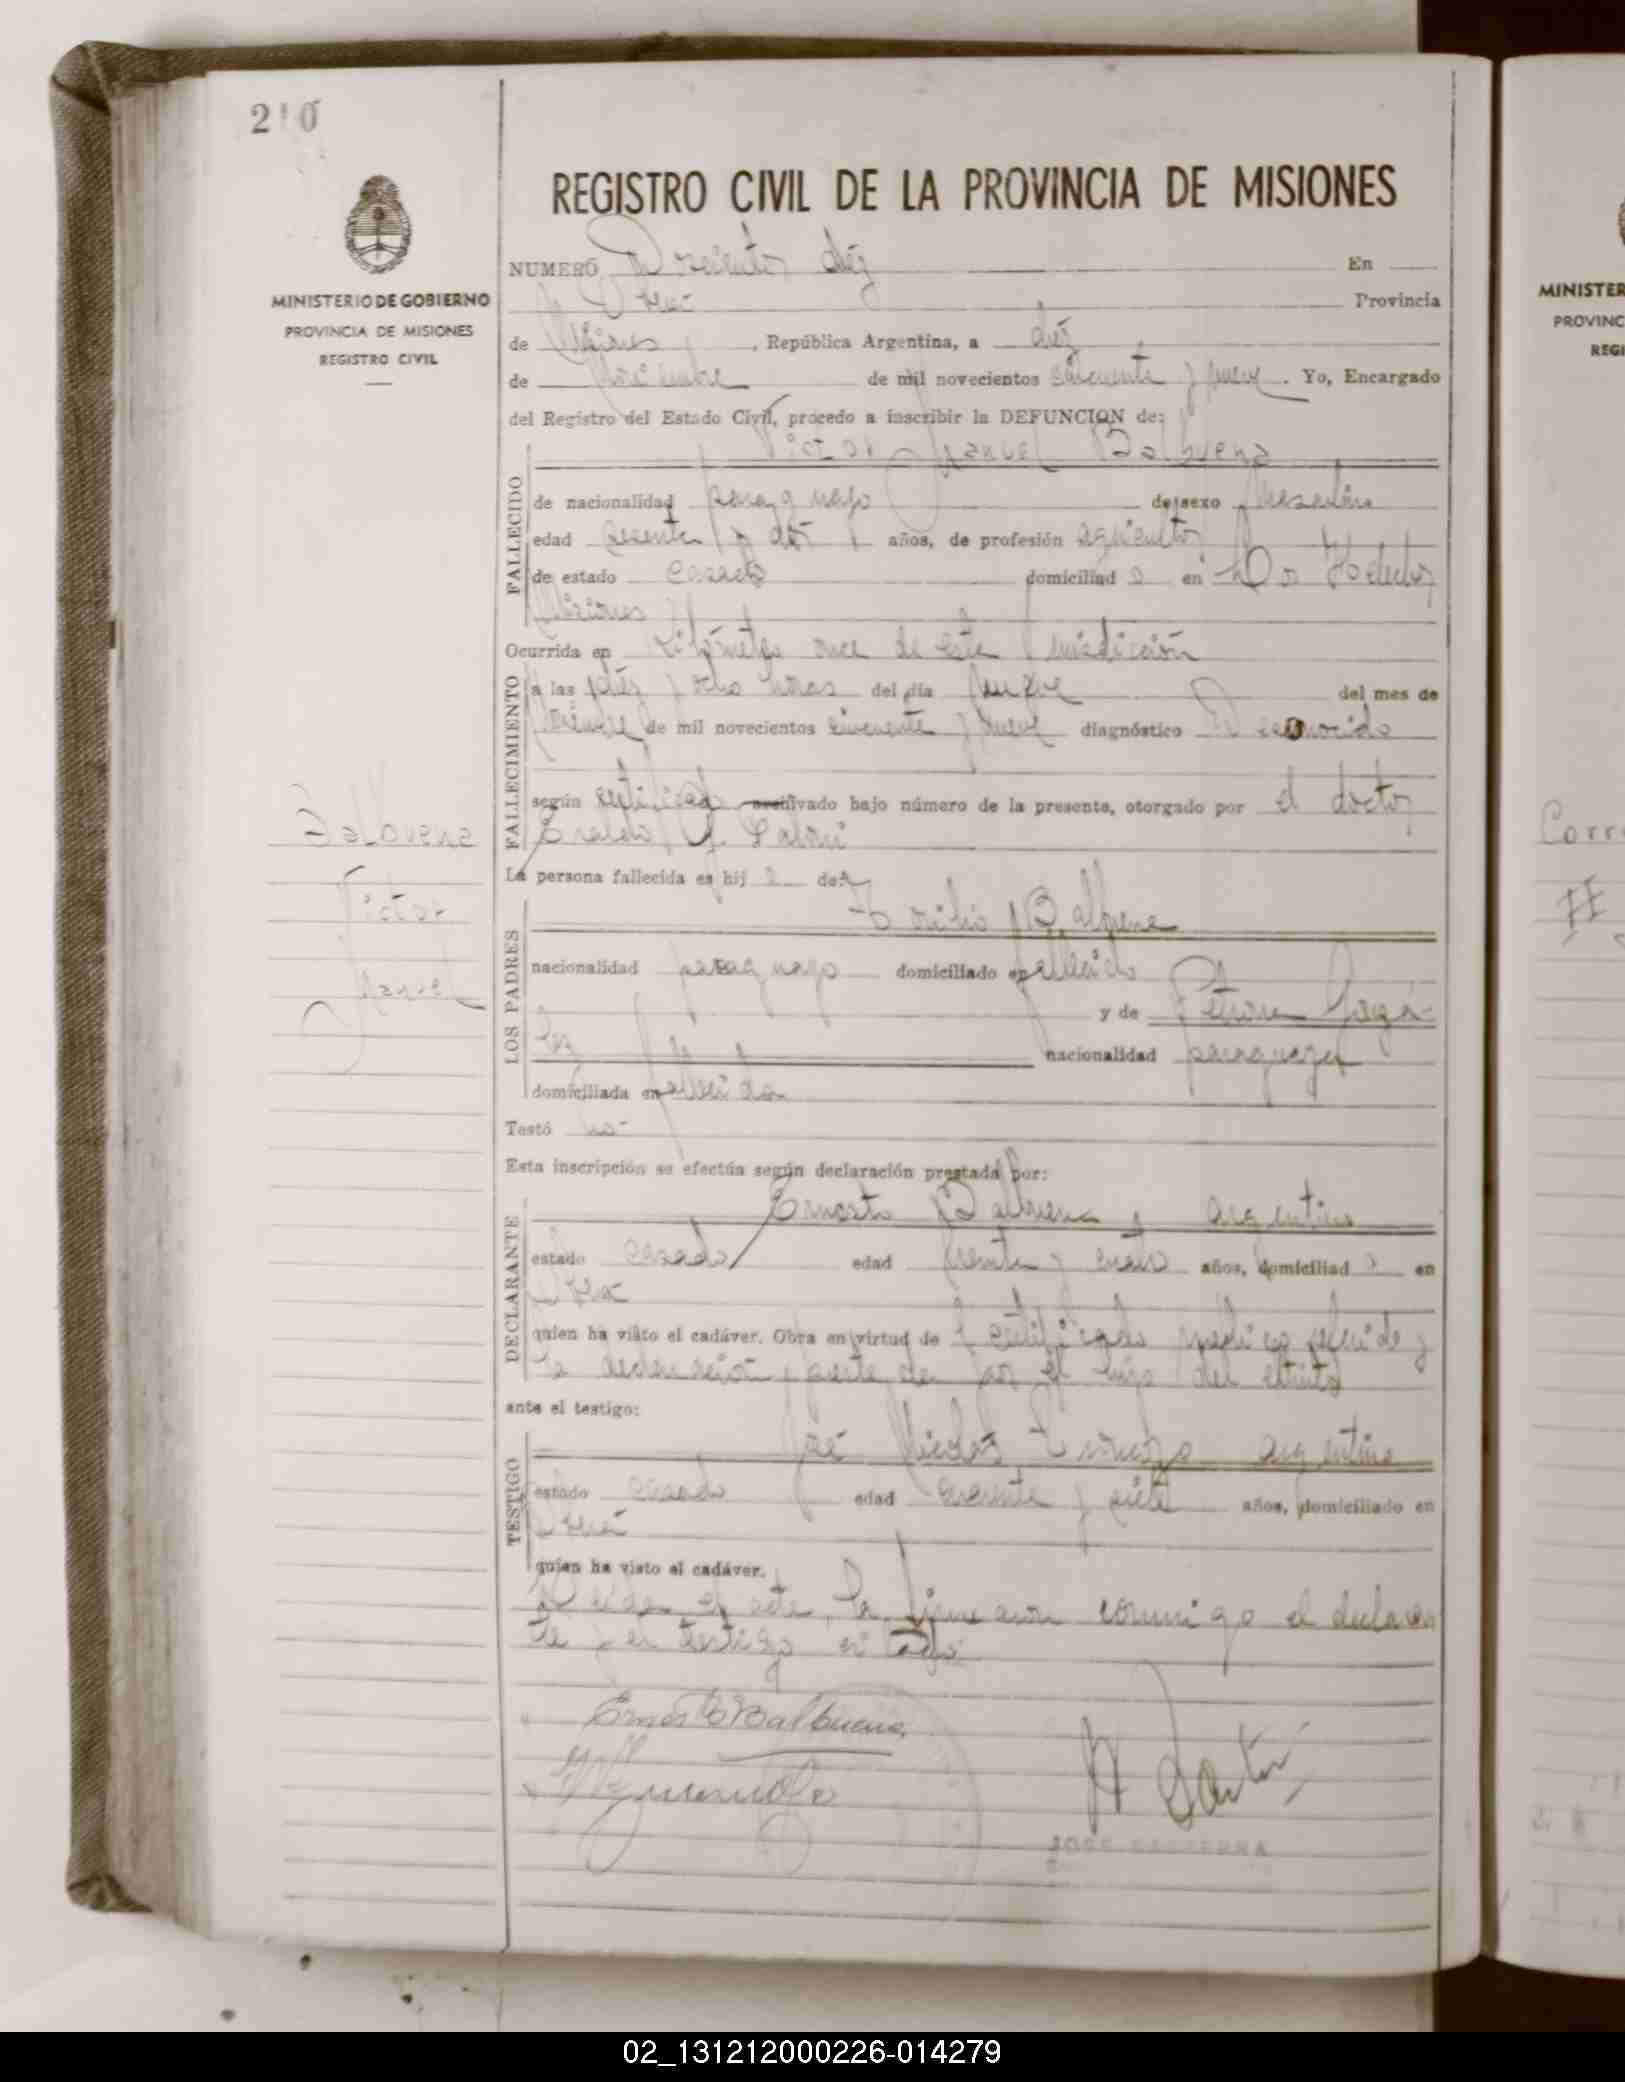 210
MINISTERIO DE GOBIERNO
PROVINCIA DE MISIONES
REGISTRO CIVIL
REGISTRO CIVIL DE LA PROVINCIA DE MISIONES
NUMERO Doscientos diez En
Oberá Provincia
de Misiones, República Argentina, a diez
de Noviembre de mil novecientos cincuenta y nueve. Yo, Encargado
del Registro del Estado Civil, procedo a inscribir la DEFUNCION de:
Victor Manuel Balbuena
FALLECIDO
de nacionalidad paraguayo de sexo masculino
edad sesenta y dos años, de profesión agricultor
de estado casado domiciliad o en
Misiones
Ocurrida en kilómetro once de esta jurisdicción
FALLECIMIENTO
a las diez y ocho horas del día nueve del mes de
Noviembre de mil novecientos cincuenta y nueve diagnóstico Desconocido
según certificado archivado bajo número de la presente, otorgado por el doctor
La persona fallecida es hij o de:
LOS PADRES
Balbuena
nacionalidad paraguayo domiciliado en fallecido
y de
nacionalidad paraguaya
domiciliada en fallecida
Testó no
Esta inscripción se efectúa según declaración prestada por:
DECLARANTE
Ernesto Balbuena, argentino
estado casado edad treinta y cuatro años, domiciliad o en
Oberá
quien ha visto el cadáver. Obra en virtud de certificado médico referido y
la declaración prestada por el hijo del extinto
ante el testigo:
TESTIGO
José Nicolás argentino
estado casado edad cuarenta y siete años, domiciliado en
Oberá
quien ha visto el cadáver.
Leída el acta, la firmaron conmigo el declaran
te y el testigo citado
Ernesto Balbuena
Balbuena
Victor
Manuel
MINISTER
PROVINC
REGI
Corr
02_131212000226-014279